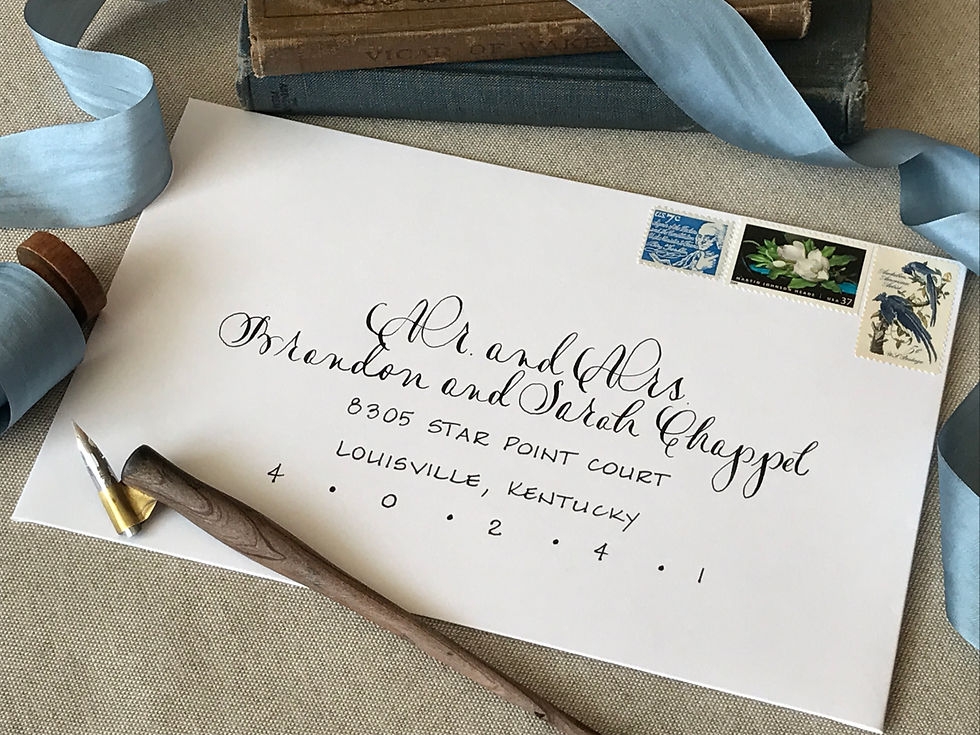 VICAR OF WAKE
U.S. 7c
MARTIN JOHNSON HEADE | USA 37
Mr. and Mrs.
Brandon and Sarah Chappel
8305 STAR POINT COURT
LOUISVILLE, KENTUCKY
4 • 0 • 2 • 4 • 1